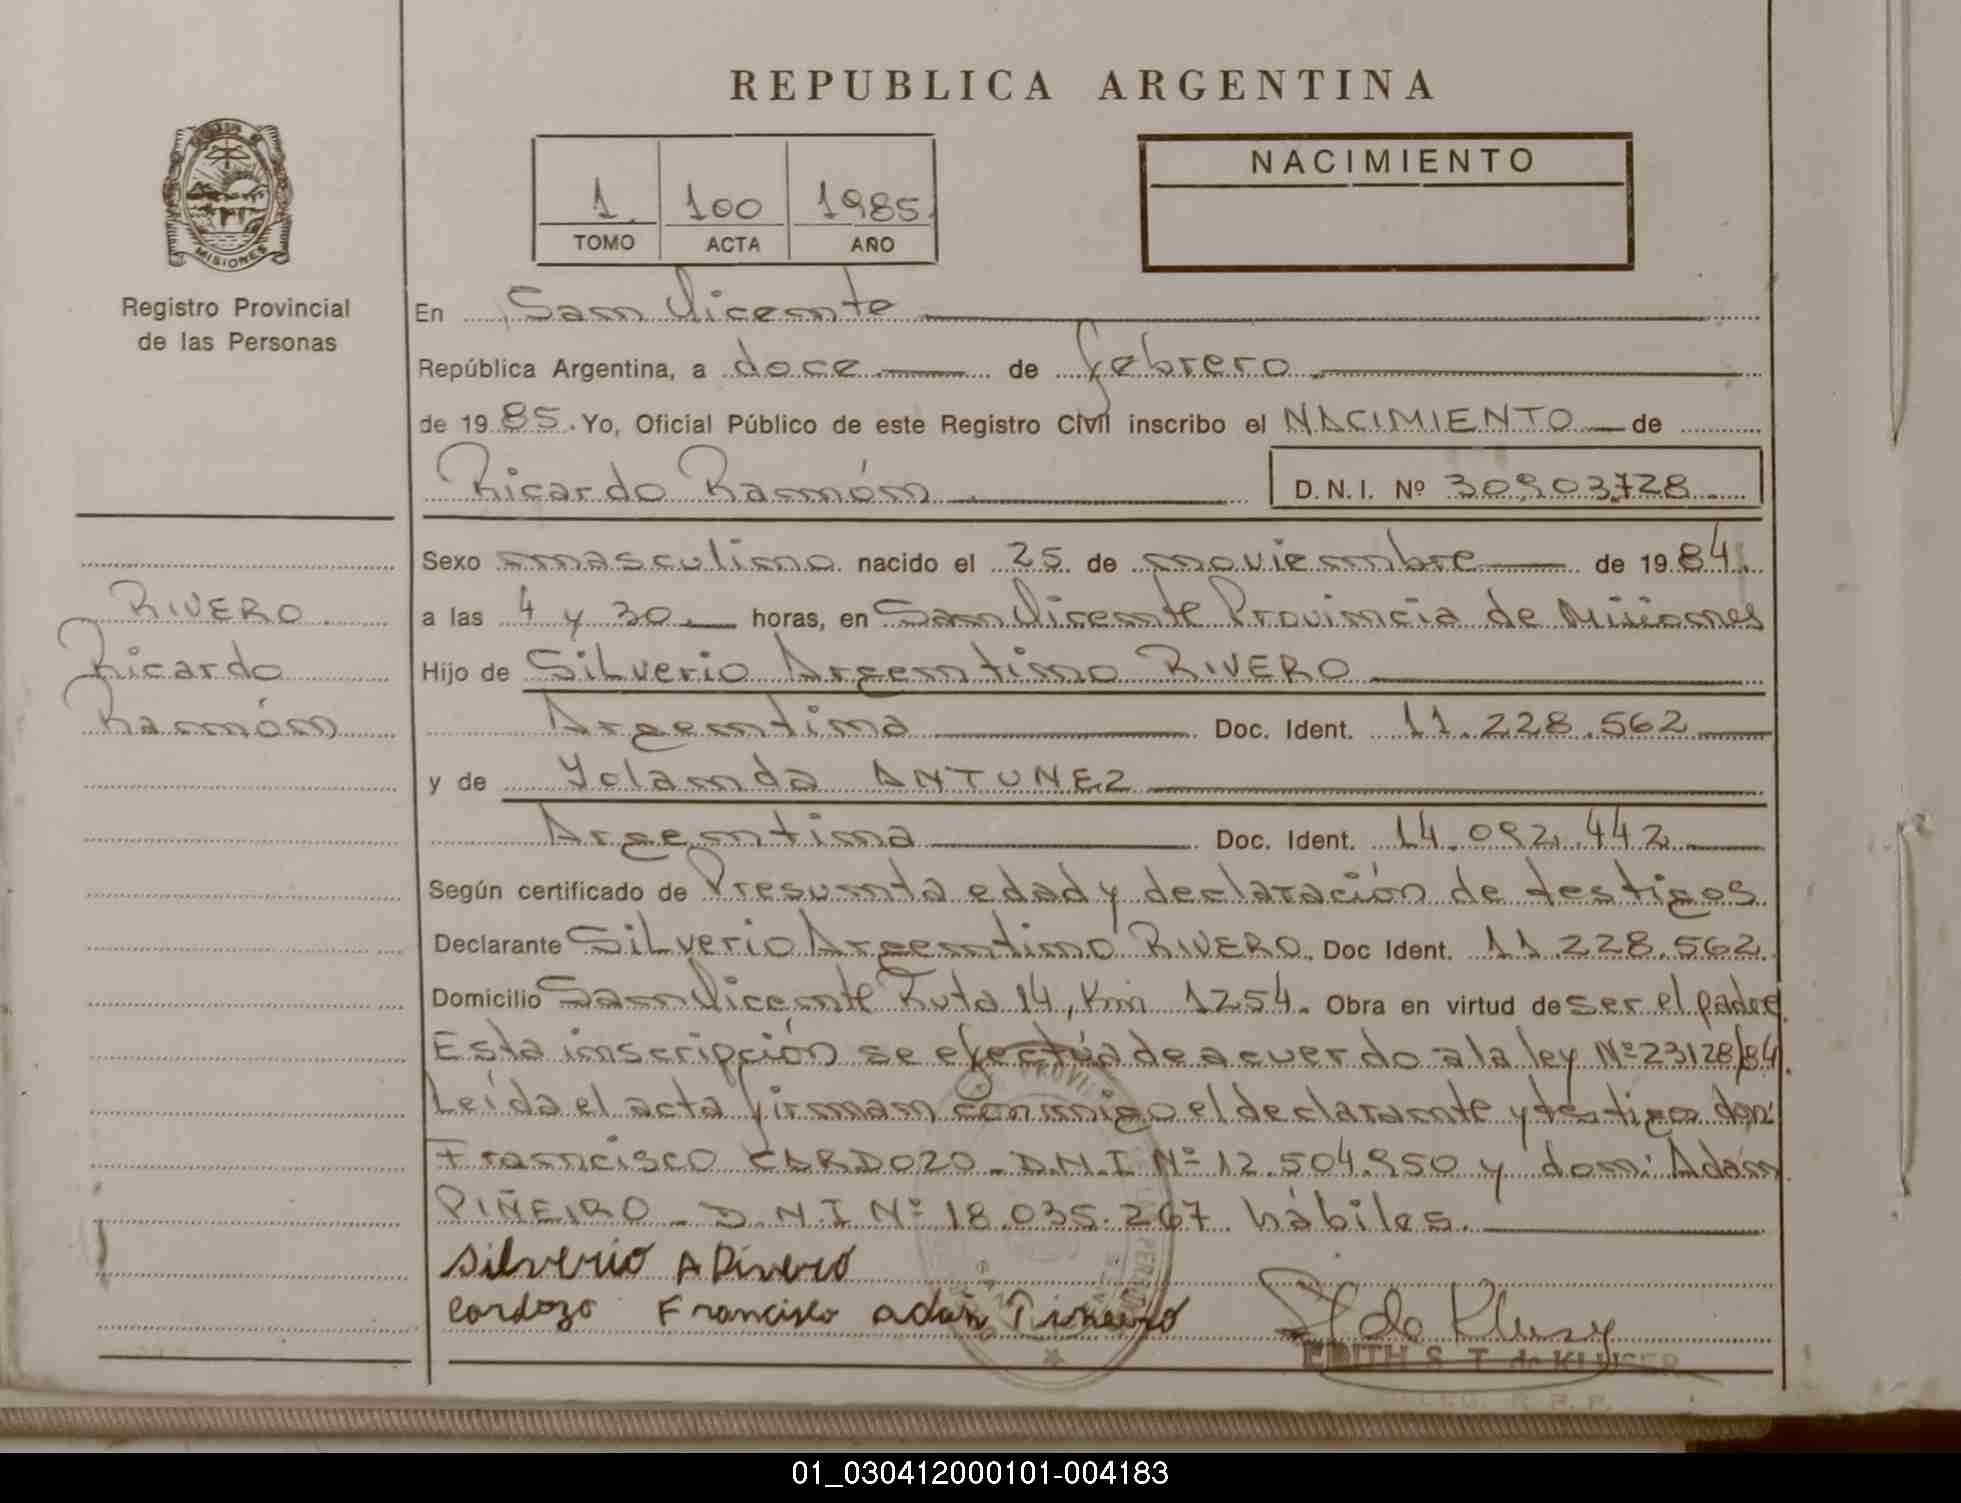 REPUBLICA ARGENTINA
MISIONES
Registro Provincial
de las Personas
1 100 1985
TOMO ACTA AÑO
NACIMIENTO
En San Vicente
República Argentina, a doce de febrero
de 1985. Yo, Oficial Público de este Registro Civil inscribo el NACIMIENTO de
Ricardo Ramón
D.N.I. Nº 30.903.728
RIVERO
Ricardo
Ramón
Sexo masculino nacido el 25 de noviembre de 1984.
a las 4 y 30 horas, en San Vicente Provincia de Misiones
Hijo de Silverio Argentino RIVERO
Argentina Doc. Ident. 11.228.562
y de Yolanda ANTUNEZ
Argentina Doc. Ident. 14.092.442
Según certificado de Presunta edad y declaración de testigos.
Declarante Silverio Argentino RIVERO. Doc Ident. 11.228.562.
Domicilio San Vicente Ruta 14, Km 1254. Obra en virtud de ser el padre.
Esta inscripción se efectúa de acuerdo a la ley Nº 23128/84.
Leída el acta firman conmigo el declarante y testigos don:
Francisco CARDOZO - D.N.I Nº 12.504.950 y don: Adan
PIÑEIRO - D.N.I Nº 18.035.267 hábiles.
Silverio A Rivero
Cardozo Francisco adan Piñeiro
EDITH S. T. de KLUSER
01_030412000101-004183